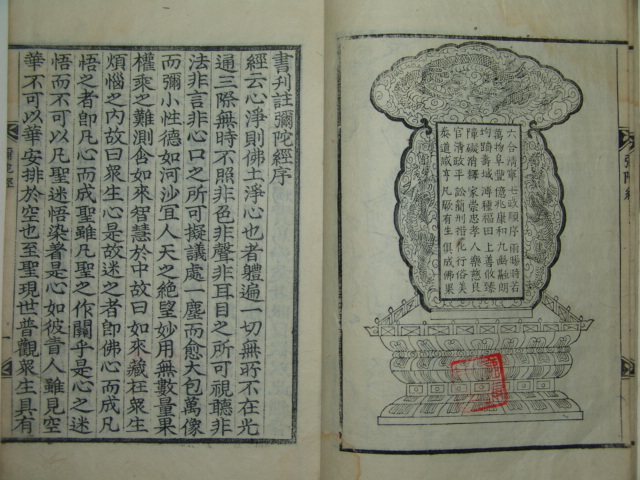 彌陀經
六合清寧七政順序雨暘時若
萬物阜豐億兆康和九幽融朗
均躋壽域溥種福田上善攸臻
障礙消釋家崇忠孝人樂慈良
官清政平訟簡刑措化行俗美
泰道咸亨凡厥有生俱成佛果
書刋註彌陀經序
經云心淨則佛土淨心也者體遍一切無所不在光
通三際無時不照非色非聲非耳目之所可視聽非
法非言非心口之所可擬議處一塵而愈大包萬像
而彌小性德如河沙冝人天之絶望妙用無數量果
權乘之難測含如來智慧於中故曰如來藏在衆生
煩惱之內故曰衆生心是故迷之者卽佛心而成凡
悟之者卽凡心而成聖雖凡聖之作關乎是心之迷
悟而不可以凡聖迷悟染著是心如彼眚人雖見空
華不可以華安排於空也至聖現世普觀衆生具有